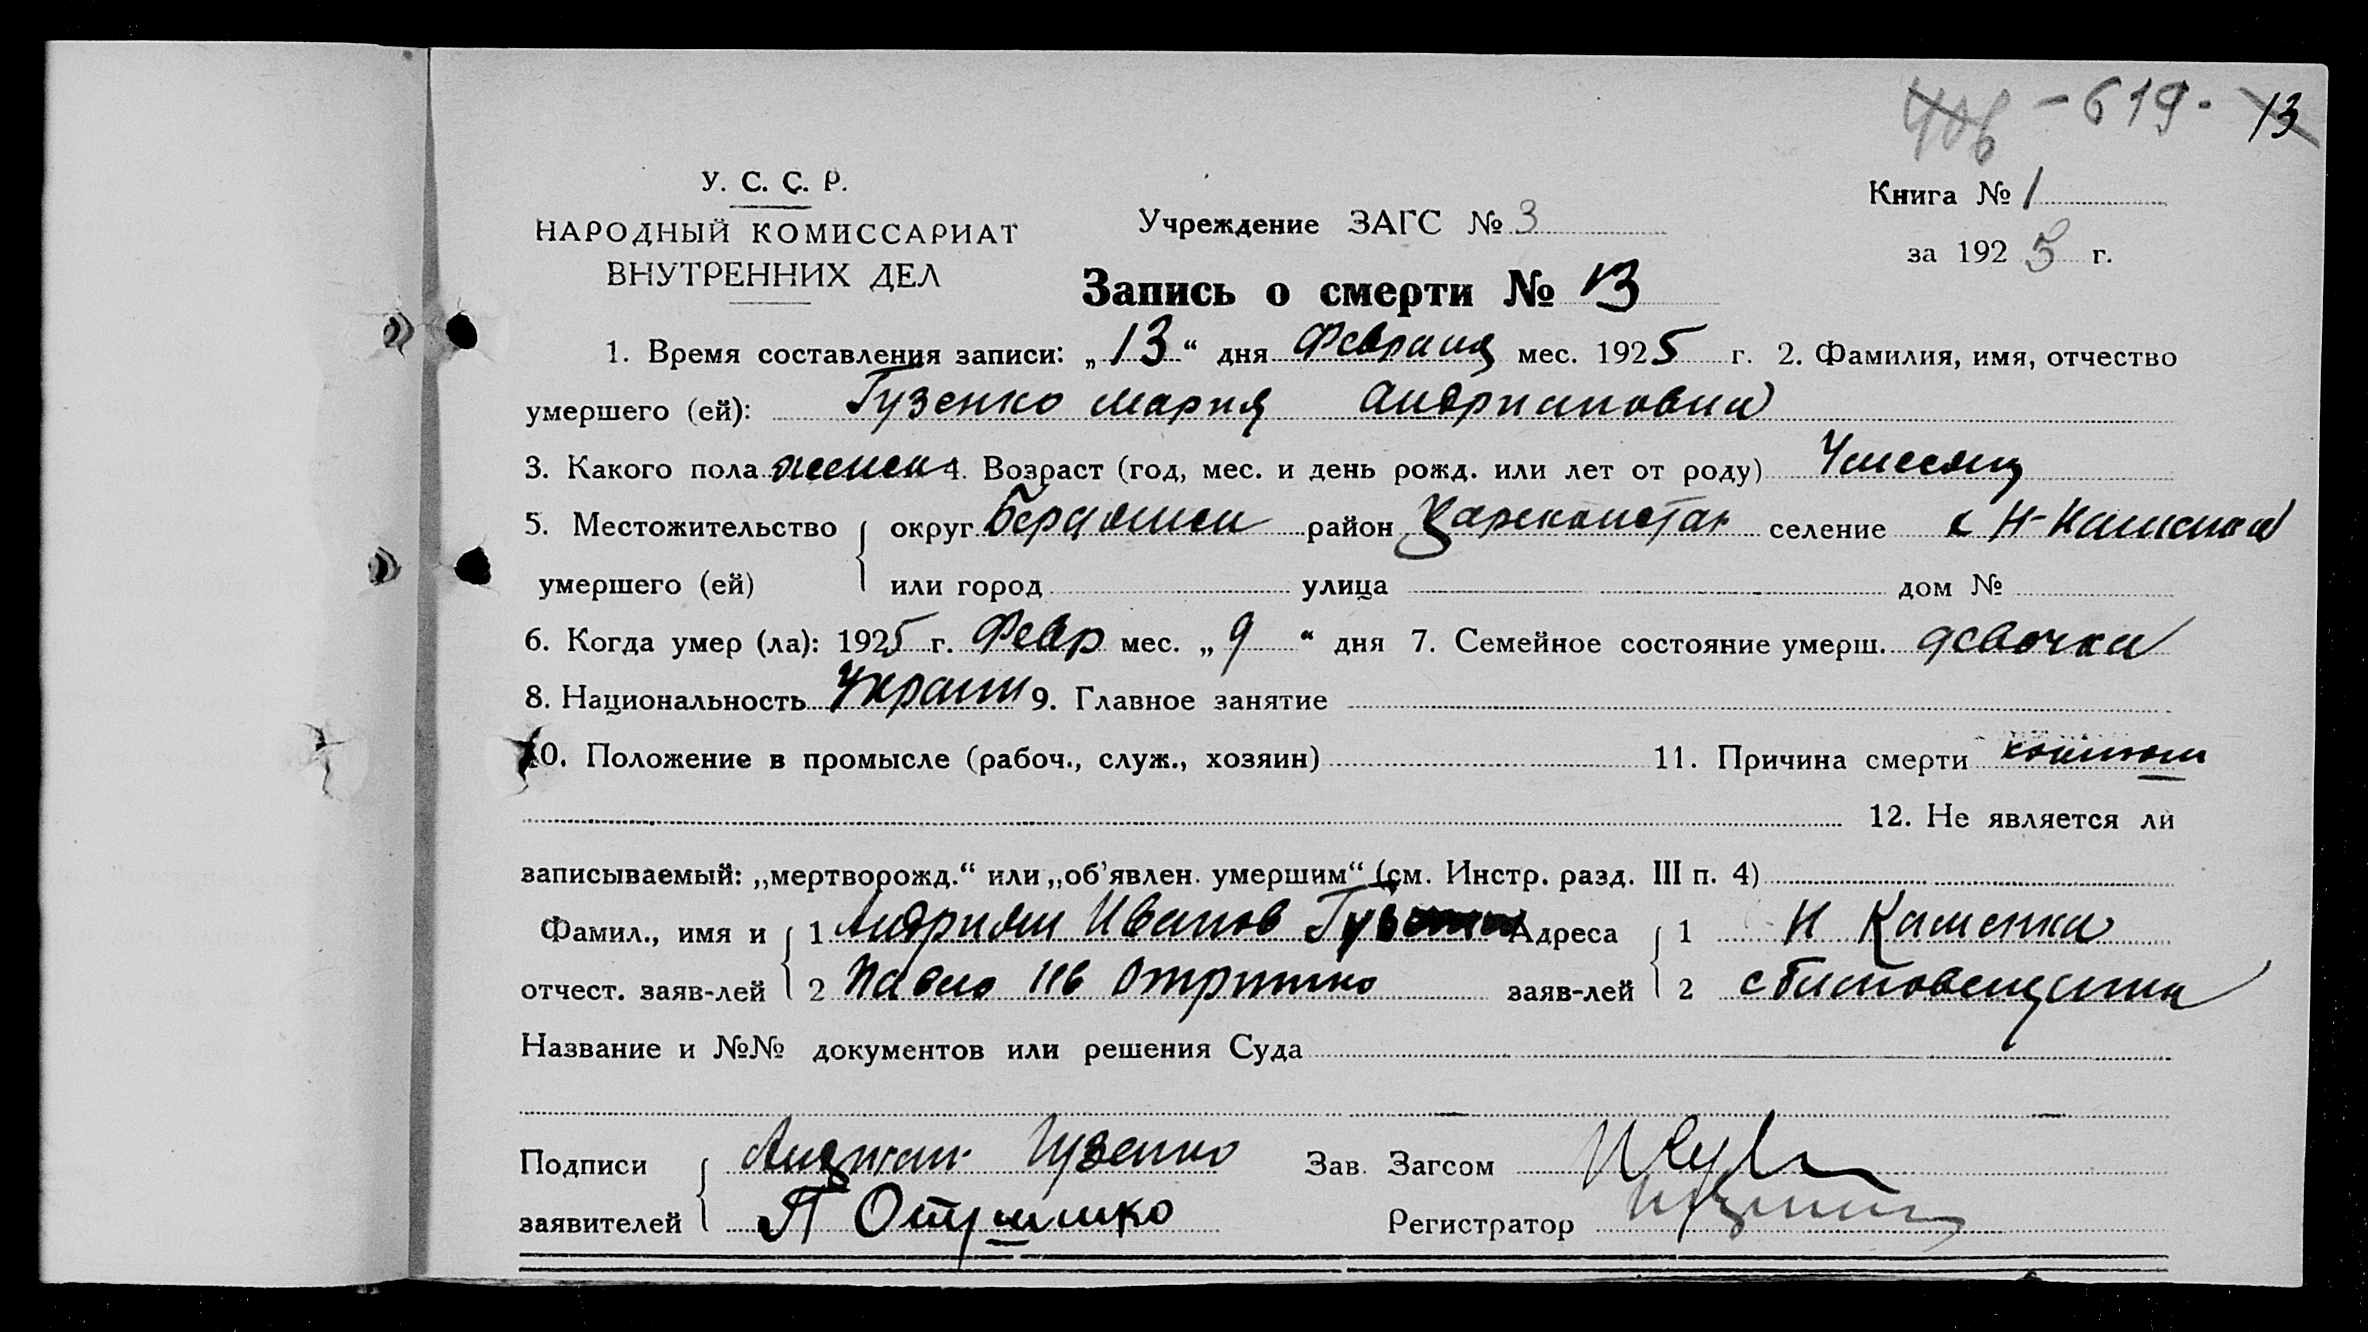 406 - 619 - 13
У. С. С. Р.
НАРОДНЫЙ КОМИССАРИАТ
ВНУТРЕННИХ ДЕЛ
Учреждение ЗАГС № 3
Книга № 1
за 1925 г.
Запись о смерти № 13
1. Время составления записи: „13“ дня Февраля мес. 1925 г. 2. Фамилия, имя, отчество
умершего (ей): Гузенко Мария Андриановна
3. Какого пола женск 4. Возраст (год, мес. и день рожд. или лет от роду)
5. Местожительство округ Бердянск район Цареконстан селение с Н-Каменка
умершего (ей) или город улица дом №
6. Когда умер (ла): 1925 г. Февр мес. „9“ дня 7. Семейное состояние умерш. девочка
8. Национальность Украин 9. Главное занятие
10. Положение в промысле (рабоч., служ., хозяин) 11. Причина смерти
12. Не является ли
записываемый: „мертворожд.“ или „об'явлен. умершим“ (см. Инстр. разд. III п. 4)
Фамил., имя и 1 Андриян Иванов Гузенко Адреса 1 Н Каменка
отчест. заяв-лей 2 Павло Ив заяв-лей 2
Название и №№ документов или решения Суда
Подписи Андриан Гузенко Зав. Загсом
заявителей П Регистратор